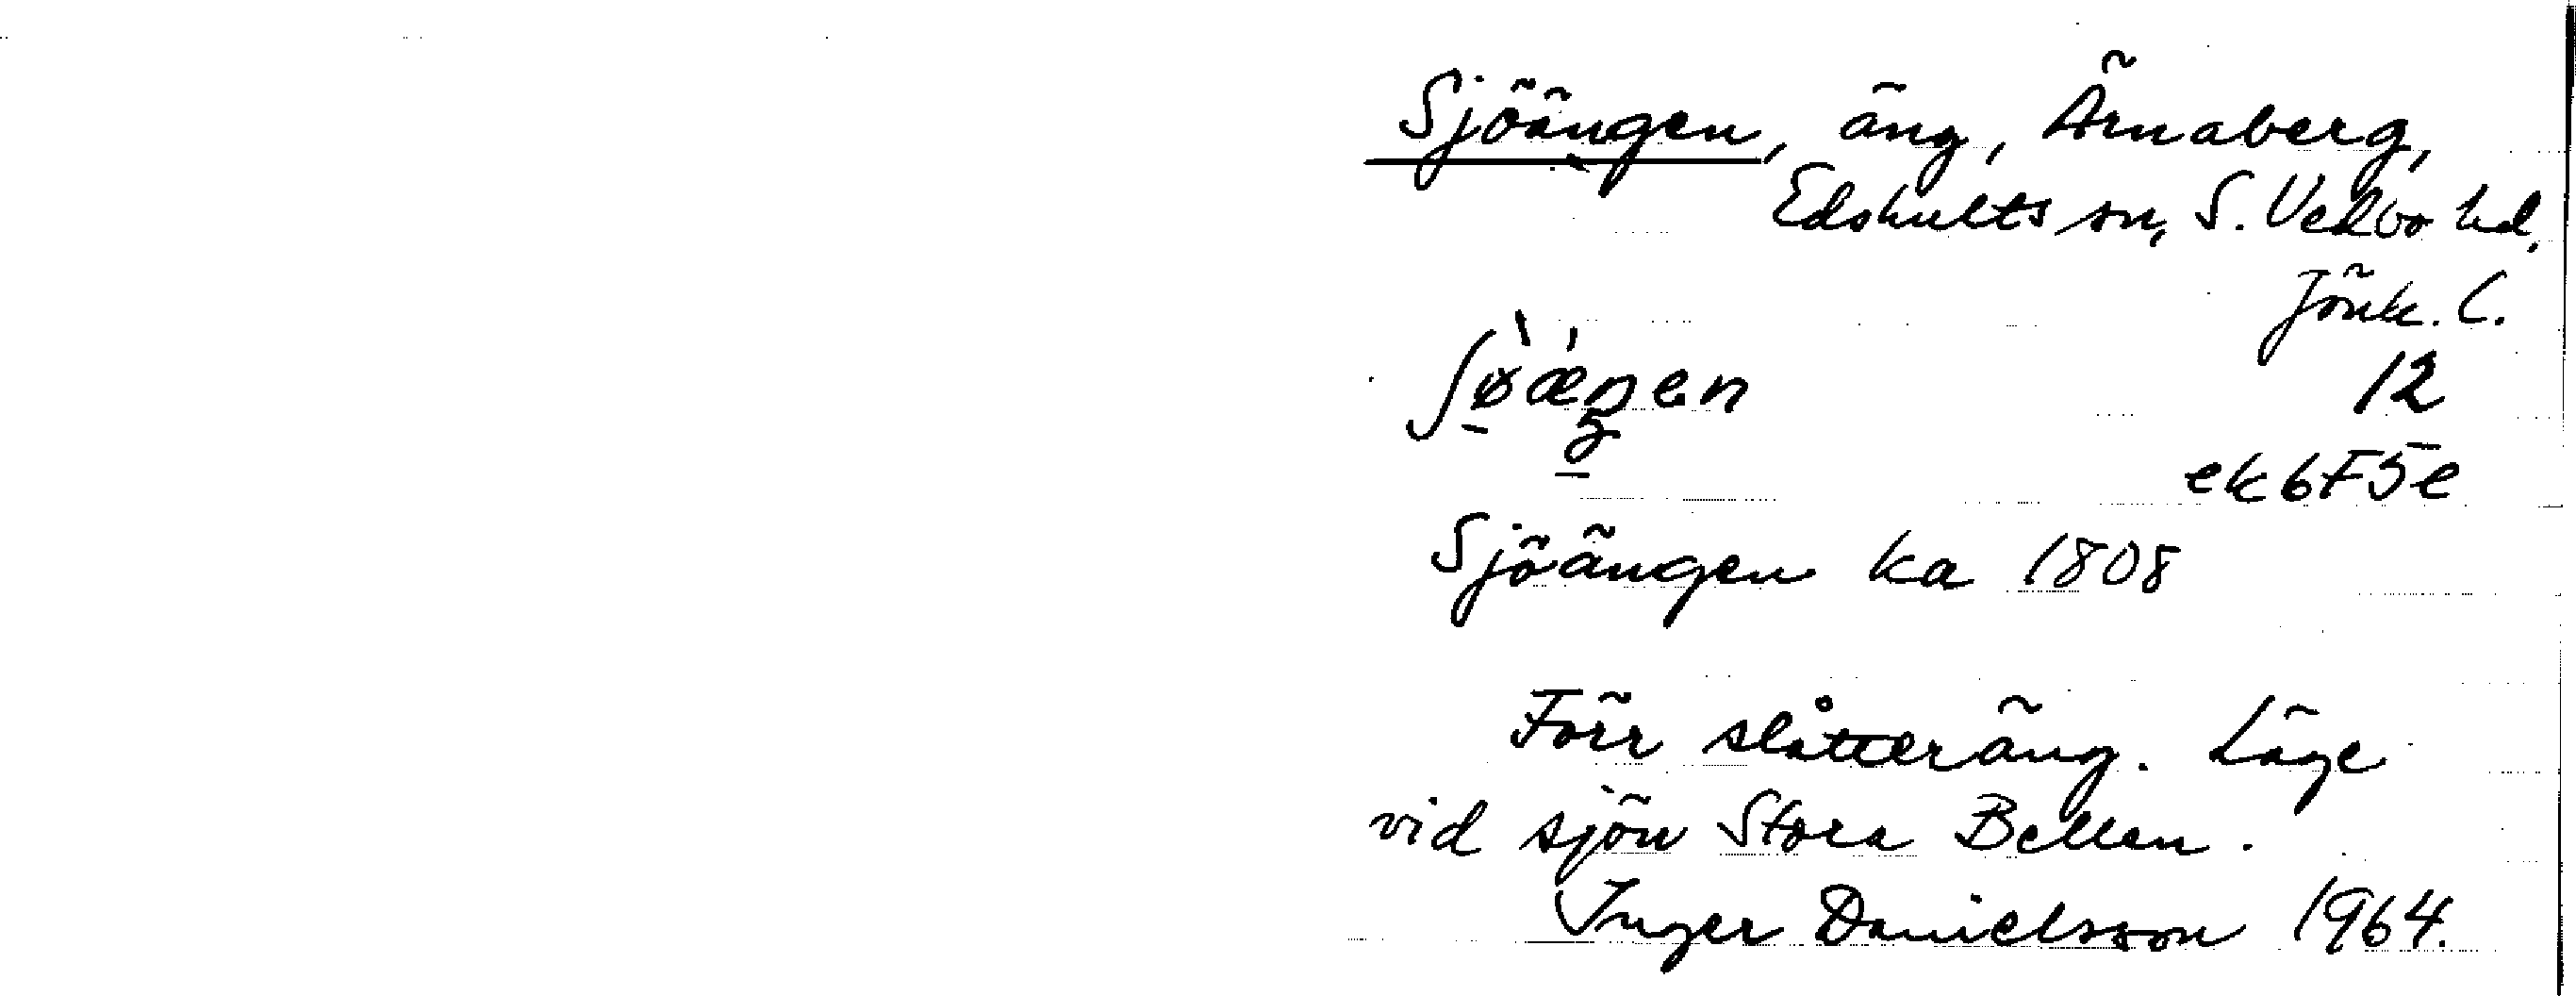 Sjöängen, äng, Ärnaberg,
Edshults sn, S. Vedbo hd,
Jönk. l.
ʃø̀æ̀ŋen 12
ek 6F5e
Sjöängen ka 1808
Förr slåtteräng. Läge
vid sjön Stora Bellen.
Inger Danielsson 1964.